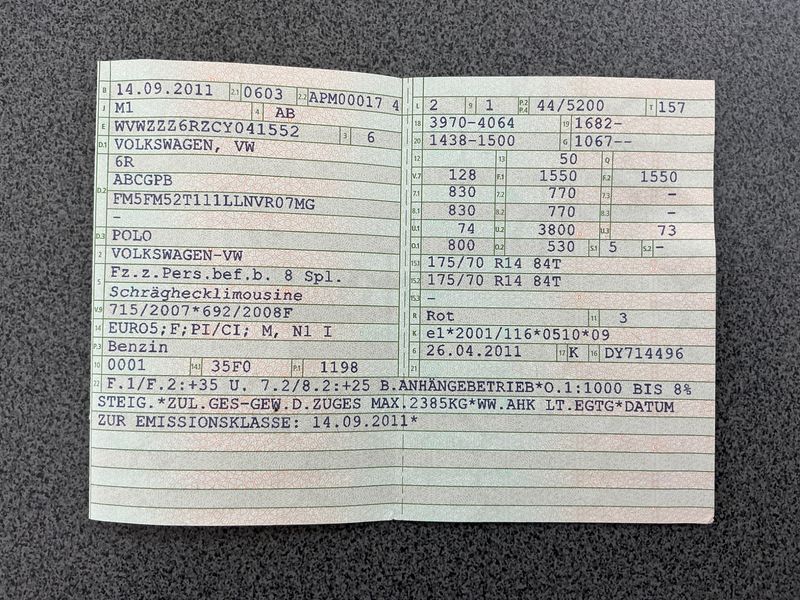 B 14.09.2011 2.1 0603 2.2 APM00017 4
J M1 4 AB
E WVWZZZ6RZCY041552 3 6
D.1 VOLKSWAGEN, VW
D.2 6R
ABCGPB
FM5FM52T111LLNVR07MG
–
D.3 POLO
2 VOLKSWAGEN-VW
5 Fz.z.Pers.bef.b. 8 Spl.
Schräghecklimousine
V.9 715/2007*692/2008F
14 EURO5;F;PI/CI; M, N1 I
P.3 Benzin
10 0001 14.1 35F0 P.1 1198
L 2 9 1 P.2 P.4 44/5200 T 157
18 3970-4064 19 1682-
20 1438-1500 G 1067--
12 13 50 Q
V.7 128 F.1 1550 F.2 1550
7.1 830 7.2 770 7.3 –
8.1 830 8.2 770 8.3 –
U.1 74 U.2 3800 U.3 73
O.1 800 O.2 530 S.1 5 S.2 –
15.1 175/70 R14 84T
15.2 175/70 R14 84T
15.3 –
R Rot 11 3
K e1*2001/116*0510*09
6 26.04.2011 17 K 16 DY714496
21
22 F.1/F.2:+35 U. 7.2/8.2:+25 B.ANHÄNGEBETRIEB*O.1:1000 BIS 8%
STEIG.*ZUL.GES-GEW.D.ZUGES MAX.2385KG*WW.AHK LT.EGTG*DATUM
ZUR EMISSIONSKLASSE: 14.09.2011*